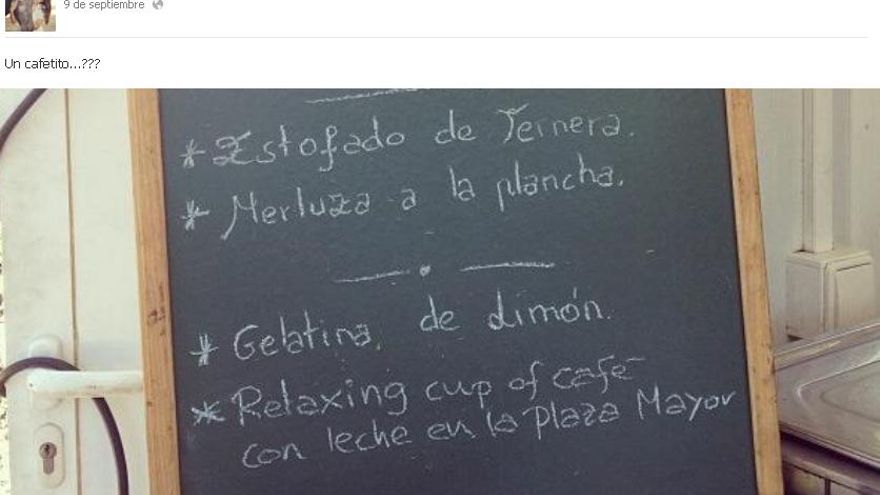 9 de septiembre
Un cafetito...???
* Estofado de Ternera.
* Merluza a la plancha.
* Gelatina de Limón.
* Relaxing cup of café
con leche en la Plaza Mayor